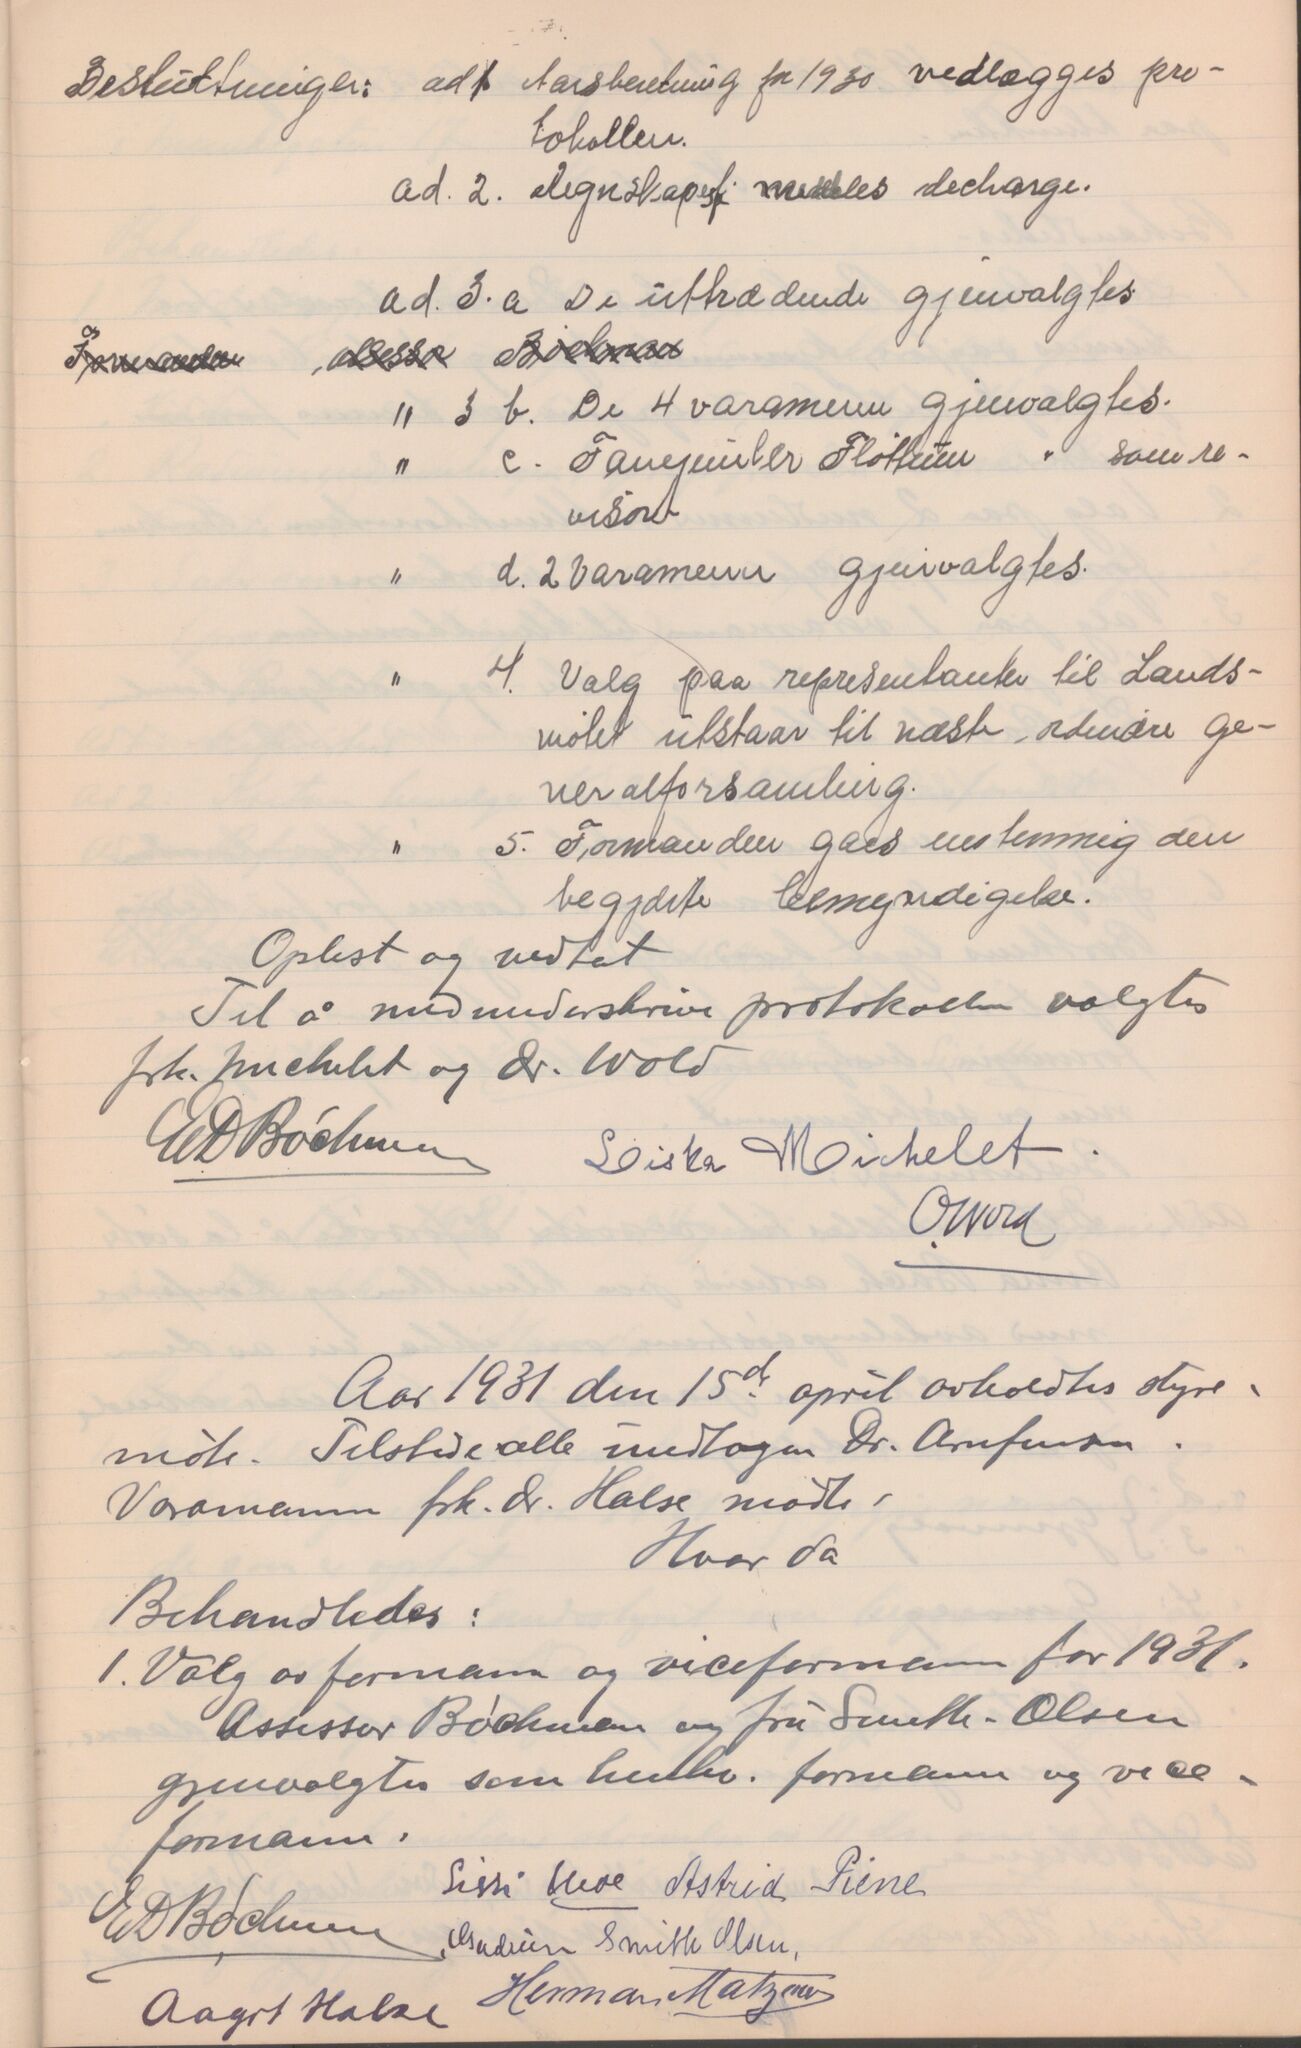 Beslutninger: ad 1 Aarsberetning for 1930 vedlægges pro-
tokollen.
ad. 2. Regnskapet meddeles decharge.
ad. 3. a De uttrædende gjenvalgtes
Formanden Assessor Böckman
" 3 b. De 4 varamenn gjenvalgtes.
" c. Fanejunker Flöttum " som re-
visor
" d. 2 Varamenn gjenvalgtes.
" 4. Valg paa representanter til Lands-
mötet utstaar til næste ordinære ge-
neralforsamling.
" 5. Formanden gaes enstemmig den
begjærte bemyndigelse.
Oplest og vedtat
Til å medunderskrive protokollen valgtes
frk. Michelet og Dr. Wold
E D Böckman Liska Michelet.
O. Wold
Aar 1931 den 15de april avholdtes styre-
möte. Tilstede alle undtagen Dr. Arnfinsen.
Varamann frk. dr. Halse mötte.
Hvor da
Behandledes:
1. Valg av formann og viceformann for 1931.
Assessor Böckman og fru Smith-Olsen
gjenvalgtes som henhv. formann og vice-
formann.
E D Böckman Sissi Astrid Piene
Gudrun Smith Olsen,
Aagot Halse Herman Matzow